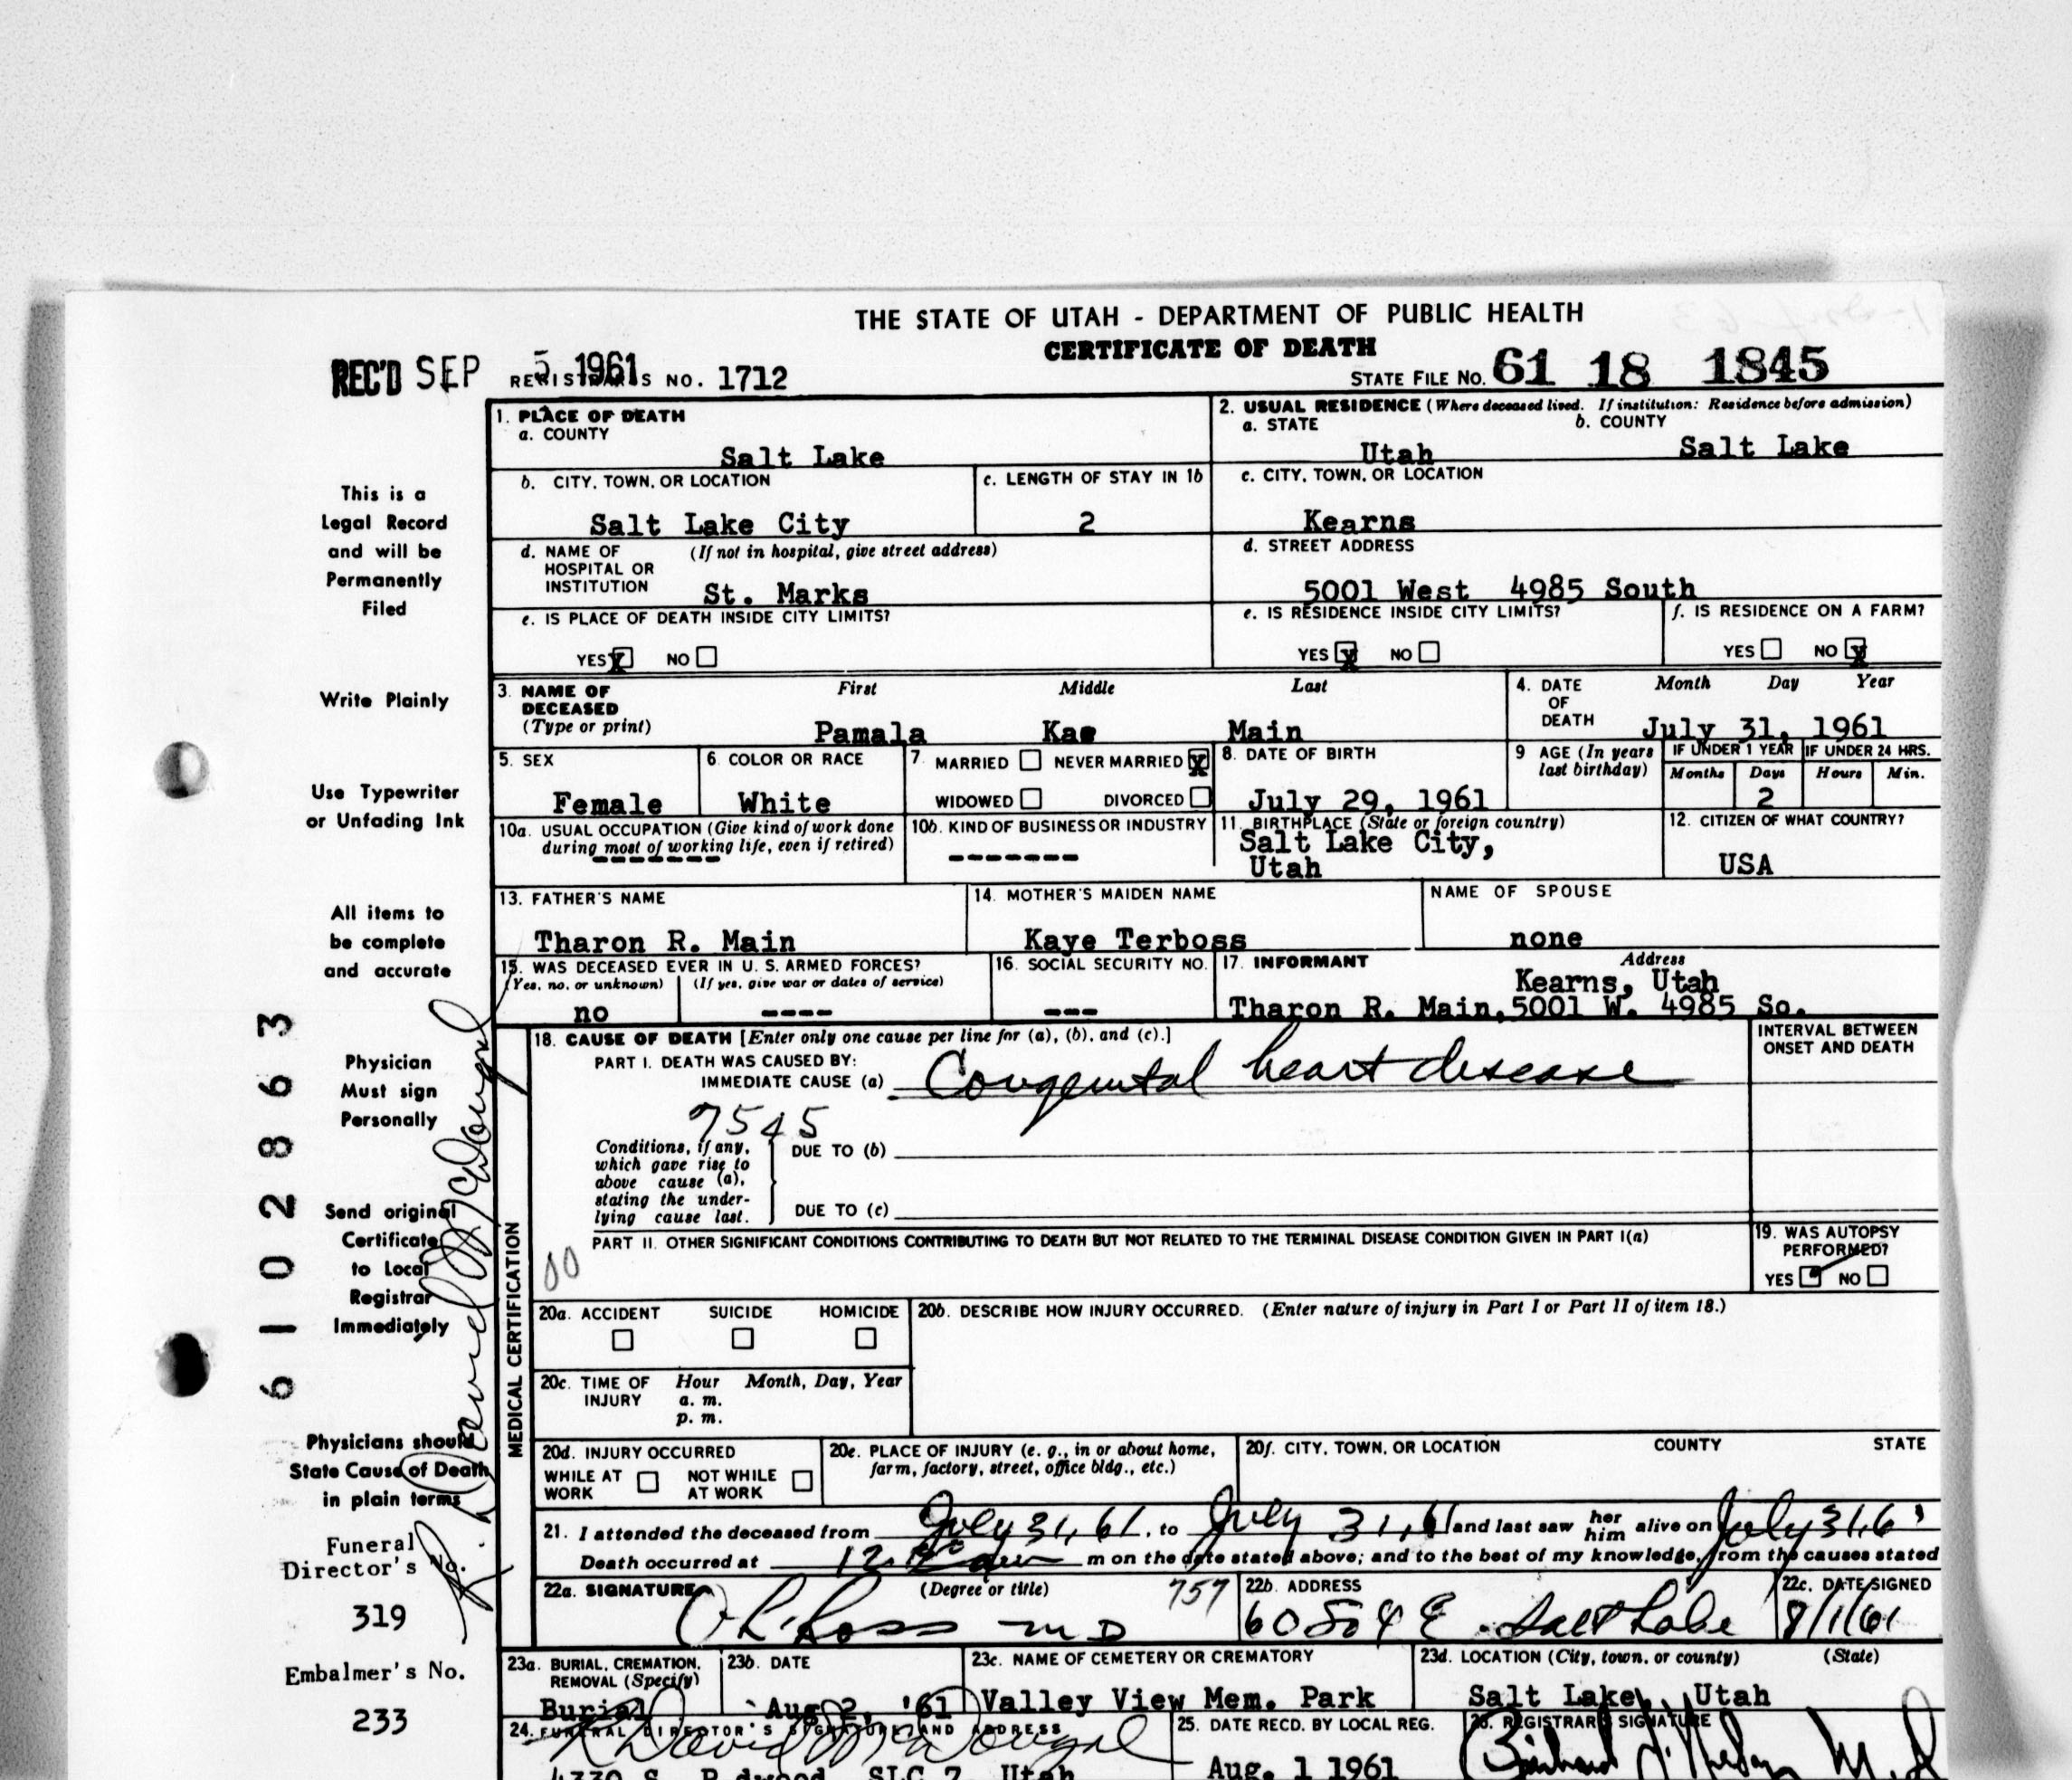 THE STATE OF UTAH - DEPARTMENT OF PUBLIC HEALTH
CERTIFICATE OF DEATH
REC'D SEP 5 1961 REGISTRAR'S NO. 1712
STATE FILE NO. 61 18 1845
1. PLACE OF DEATH
a. COUNTY
Salt Lake
2. USUAL RESIDENCE (Where deceased lived. If institution: Residence before admission)
a. STATE b. COUNTY
Utah Salt Lake
b. CITY, TOWN, OR LOCATION
Salt Lake City
c. LENGTH OF STAY IN 1b
2
c. CITY, TOWN, OR LOCATION
Kearns
d. NAME OF (If not in hospital, give street address)
HOSPITAL OR
INSTITUTION St. Marks
d. STREET ADDRESS
5001 West 4985 South
e. IS PLACE OF DEATH INSIDE CITY LIMITS?
YES X NO
e. IS RESIDENCE INSIDE CITY LIMITS?
YES X NO
f. IS RESIDENCE ON A FARM?
YES NO X
3. NAME OF DECEASED (Type or print)
First Middle Last
Pamala Kae Main
4. DATE OF DEATH
Month Day Year
July 31, 1961
5. SEX
Female
6. COLOR OR RACE
White
7. MARRIED NEVER MARRIED X
WIDOWED DIVORCED
8. DATE OF BIRTH
July 29, 1961
9 AGE (In years last birthday)
IF UNDER 1 YEAR IF UNDER 24 HRS.
Months Days Hours Min.
2
10a. USUAL OCCUPATION (Give kind of work done
during most of working life, even if retired)
-------
10b. KIND OF BUSINESS OR INDUSTRY
-------
11. BIRTHPLACE (State or foreign country)
Salt Lake City,
Utah
12. CITIZEN OF WHAT COUNTRY?
USA
13. FATHER'S NAME
Tharon R. Main
14. MOTHER'S MAIDEN NAME
Kaye Terboss
NAME OF SPOUSE
none
15. WAS DECEASED EVER IN U. S. ARMED FORCES?
(Yes, no, or unknown) (If yes, give war or dates of service)
no ----
16. SOCIAL SECURITY NO.
---
17. INFORMANT Address
Kearns, Utah
Tharon R. Main, 5001 W. 4985 So.
18. CAUSE OF DEATH [Enter only one cause per line for (a), (b), and (c).]
PART I. DEATH WAS CAUSED BY:
IMMEDIATE CAUSE (a) Congenital heart disease
INTERVAL BETWEEN
ONSET AND DEATH
7545
Conditions, if any,
which gave rise to
above cause (a),
stating the under-
lying cause last.
DUE TO (b)
DUE TO (c)
PART II. OTHER SIGNIFICANT CONDITIONS CONTRIBUTING TO DEATH BUT NOT RELATED TO THE TERMINAL DISEASE CONDITION GIVEN IN PART I(a)
00
19. WAS AUTOPSY
PERFORMED?
YES NO
MEDICAL CERTIFICATION
20a. ACCIDENT SUICIDE HOMICIDE
20b. DESCRIBE HOW INJURY OCCURRED. (Enter nature of injury in Part I or Part II of item 18.)
20c. TIME OF INJURY
Hour Month, Day, Year
a. m.
p. m.
20d. INJURY OCCURRED
WHILE AT WORK NOT WHILE AT WORK
20e. PLACE OF INJURY (e. g., in or about home,
farm, factory, street, office bldg., etc.)
20f. CITY, TOWN, OR LOCATION COUNTY STATE
21. I attended the deceased from July 31, 61, to July 31, 61 and last saw her him alive on July 31, 61
Death occurred at m on the date stated above; and to the best of my knowledge, from the causes stated
22a. SIGNATURE (Degree or title)
Ross MD 757
22b. ADDRESS
Salt Lake
22c. DATE SIGNED
8/1/61
23a. BURIAL, CREMATION,
REMOVAL (Specify)
Burial
23b. DATE
Aug 2, '61
23c. NAME OF CEMETERY OR CREMATORY
Valley View Mem. Park
23d. LOCATION (City, town, or county) (State)
Salt Lake, Utah
24. FUNERAL DIRECTOR'S SIGNATURE AND ADDRESS
R David McDougal
4330 S. Redwood, SLC 7, Utah
25. DATE RECD. BY LOCAL REG.
Aug. 1 1961
26. REGISTRAR'S SIGNATURE
This is a
Legal Record
and will be
Permanently
Filed
Write Plainly
Use Typewriter
or Unfading Ink
All items to
be complete
and accurate
Physician
Must sign
Personally
Send original
Certificate
to Local
Registrar
Immediately
Physicians should
State Cause of Death
in plain terms
Funeral
Director's No.
319
Embalmer's No.
233
6102863
R. David McDougal